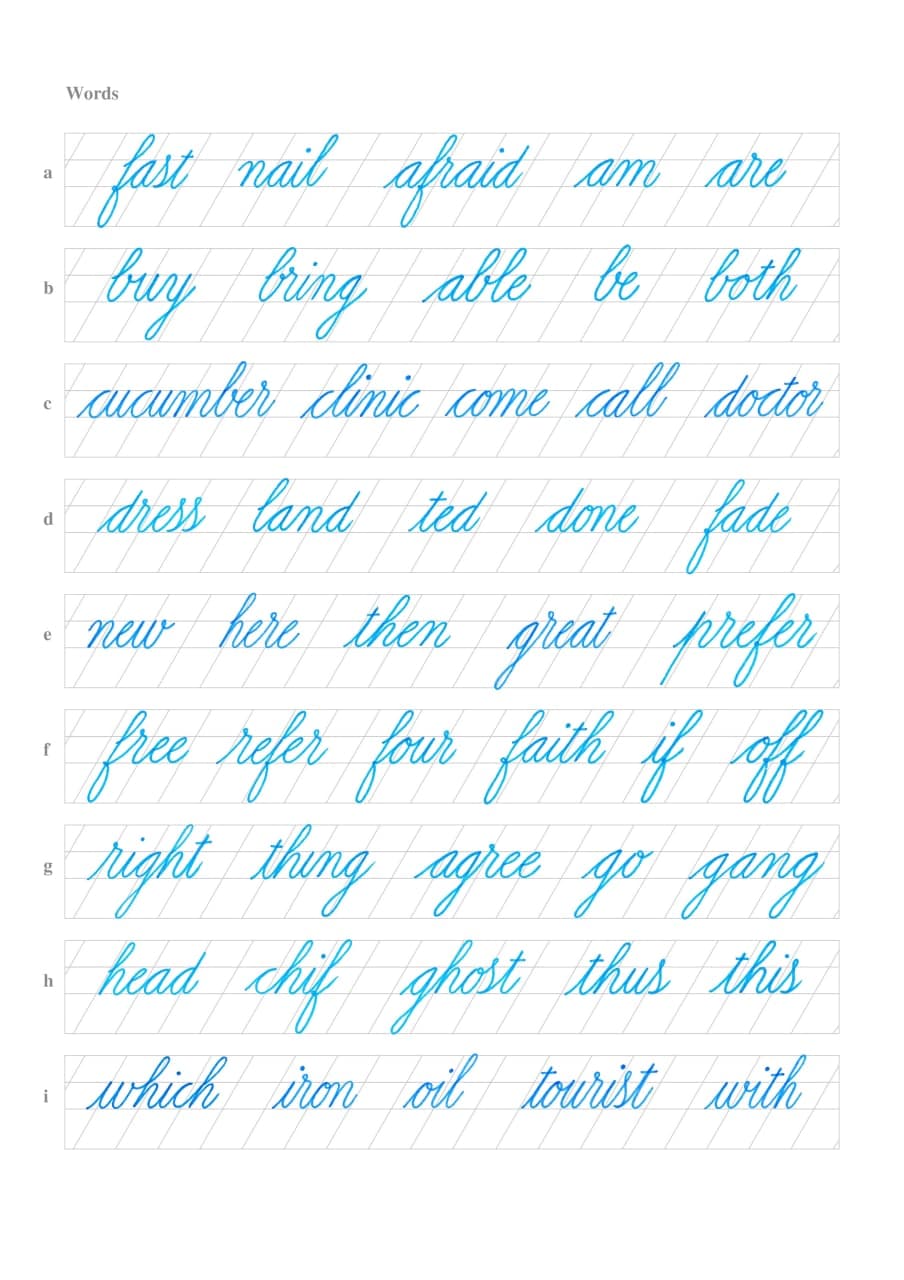 Words
a fast nail afraid am are
b buy bring able be both
c cucumber clinic come call doctor
d dress land ted done fade
e new here then great prefer
f free refer four faith if off
g right thing agree go gang
h head chif ghost thus this
i which iron oil tourist with